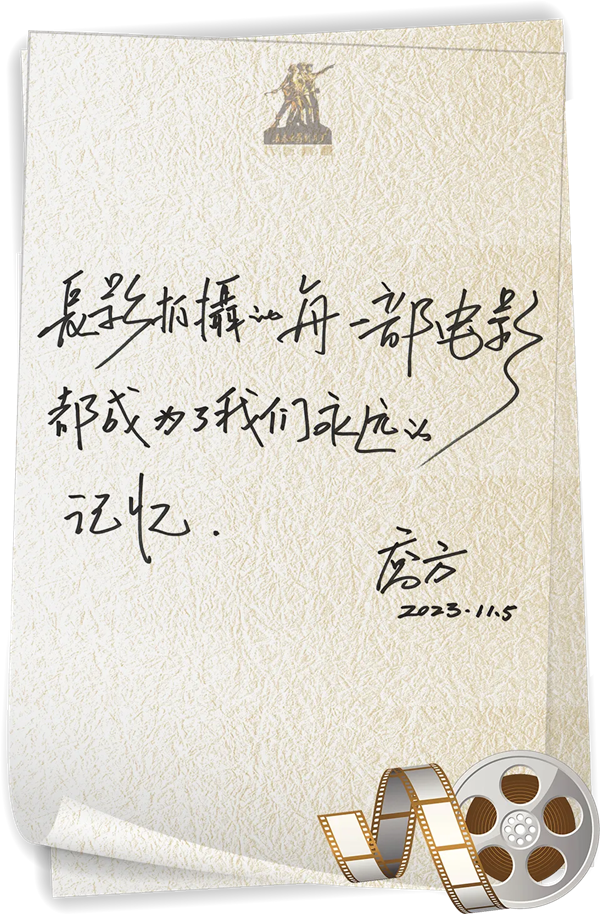 長影拍攝的每一部电影
都成为了我们永远的
记忆.
乔方
2023.11.5